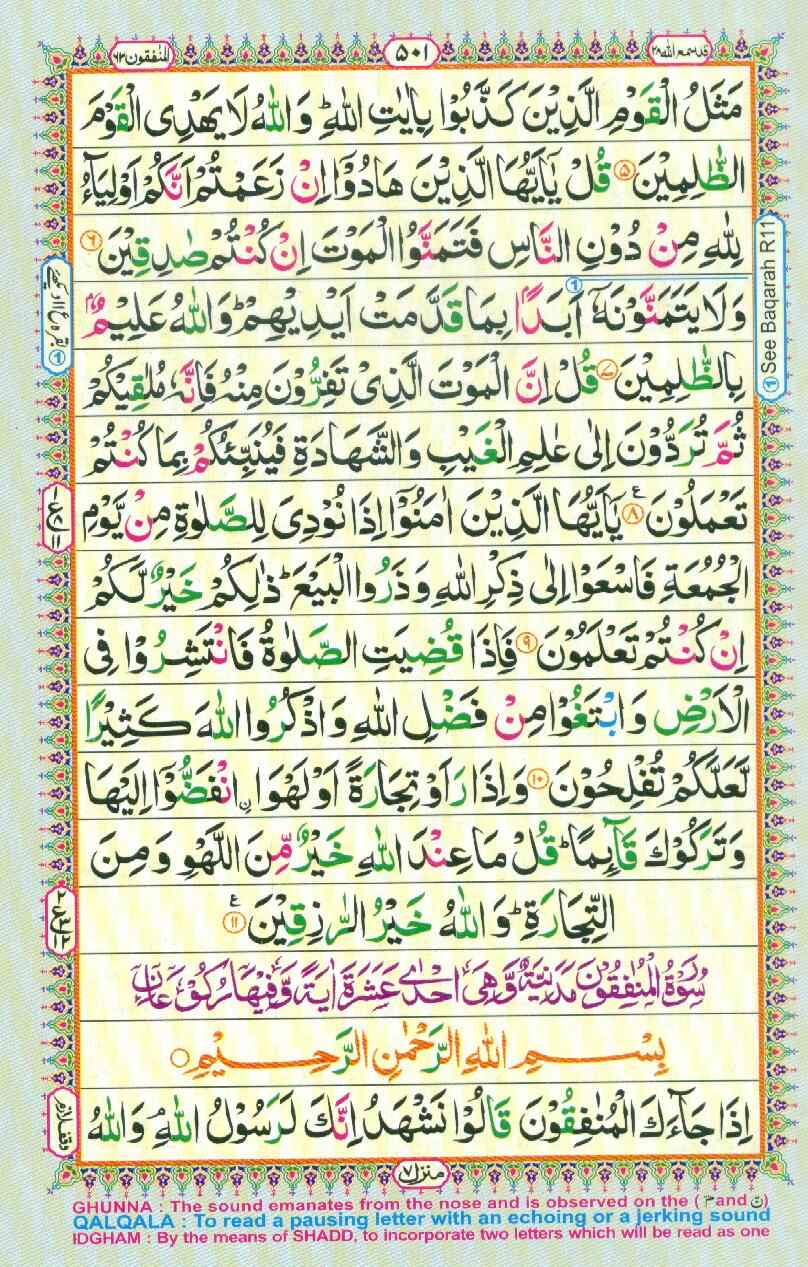 المنفقون ٦٣
٥٠١
قد سمع الله ٢٨
مَثَلُ الْقَوْمِ الَّذِيْنَ كَذَّبُوْا بِاٰيٰتِ اللّٰهِ ؕ وَاللّٰهُ لَا يَهْدِى الْقَوْمَ
الظّٰلِمِيْنَ ۵ قُلْ يٰۤاَيُّهَا الَّذِيْنَ هَادُوْۤا اِنْ زَعَمْتُمْ اَنَّكُمْ اَوْلِيَآءُ
لِلّٰهِ مِنْ دُوْنِ النَّاسِ فَتَمَنَّوُا الْمَوْتَ اِنْ كُنْتُمْ صٰدِقِيْنَ ٦
وَلَا يَتَمَنَّوْنَهٗۤ اَبَدًۢا بِمَا قَدَّمَتْ اَيْدِيْهِمْ ؕ وَاللّٰهُ عَلِيْمٌۢ
بِالظّٰلِمِيْنَ ٧ قُلْ اِنَّ الْمَوْتَ الَّذِىْ تَفِرُّوْنَ مِنْهُ فَاِنَّهٗ مُلٰقِيْكُمْ
ثُمَّ تُرَدُّوْنَ اِلٰى عٰلِمِ الْغَيْبِ وَالشَّهَادَةِ فَيُنَبِّئُكُمْ بِمَا كُنْتُمْ
تَعْمَلُوْنَ ٨ ع يٰۤاَيُّهَا الَّذِيْنَ اٰمَنُوْۤا اِذَا نُوْدِىَ لِلصَّلٰوةِ مِنْ يَّوْمِ
الْجُمُعَةِ فَاسْعَوْا اِلٰى ذِكْرِ اللّٰهِ وَذَرُوا الْبَيْعَ ؕ ذٰلِكُمْ خَيْرٌ لَّكُمْ
اِنْ كُنْتُمْ تَعْلَمُوْنَ ٩ فَاِذَا قُضِيَتِ الصَّلٰوةُ فَانْتَشِرُوْا فِى
الْاَرْضِ وَابْتَغُوْا مِنْ فَضْلِ اللّٰهِ وَاذْكُرُوا اللّٰهَ كَثِيْرًا
لَّعَلَّكُمْ تُفْلِحُوْنَ ١٠ وَاِذَا رَاَوْ تِجَارَةً اَوْ لَهْوَا ۨانْفَضُّوْۤا اِلَيْهَا
وَتَرَكُوْكَ قَآئِمًا ؕ قُلْ مَا عِنْدَ اللّٰهِ خَيْرٌ مِّنَ اللَّهْوِ وَمِنَ
التِّجَارَةِ ؕ وَاللّٰهُ خَيْرُ الرّٰزِقِيْنَ ١١ ع
سُوْرَةُ الْمُنٰفِقُوْنَ مَدَنِيَّةٌ وَّهِىَ اِحْدٰى عَشَرَةَ اٰيَةً وَّفِيْهَا رُكُوْعَانِ
بِسْمِ اللّٰهِ الرَّحْمٰنِ الرَّحِيْمِ
اِذَا جَآءَكَ الْمُنٰفِقُوْنَ قَالُوْا نَشْهَدُ اِنَّكَ لَرَسُوْلُ اللّٰهِ ۘ وَاللّٰهُ
١ See Baqarah R11
منزل ٧
GHUNNA : The sound emanates from the nose and is observed on the ( م and ن )
QALQALA : To read a pausing letter with an echoing or a jerking sound
IDGHAM : By the means of SHADD, to incorporate two letters which will be read as one